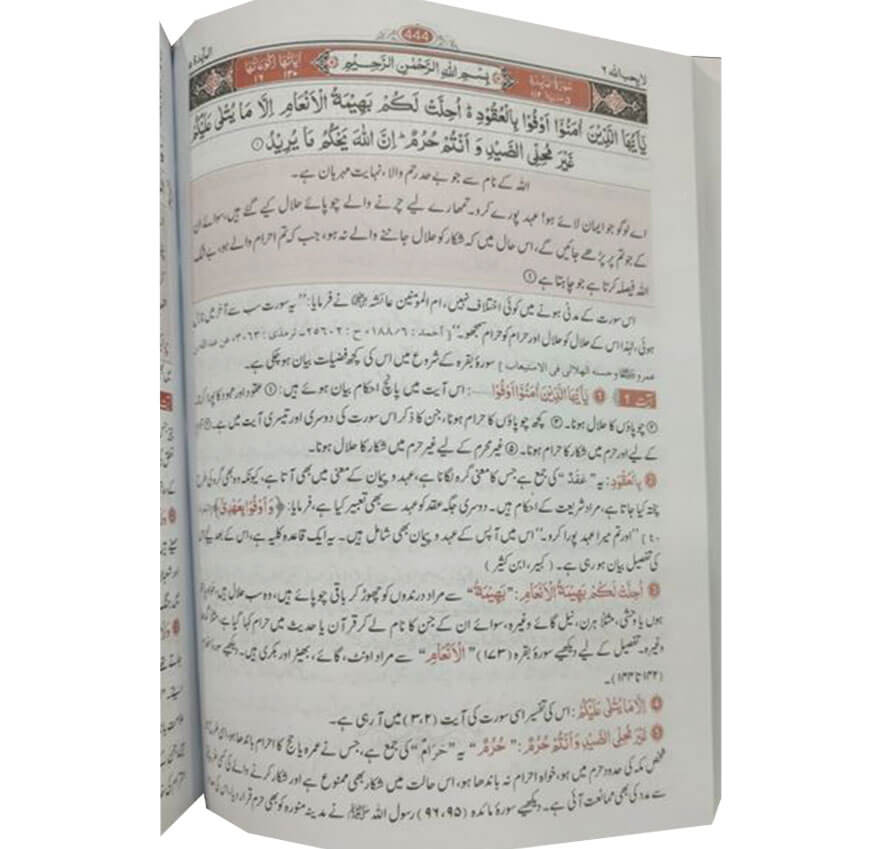 لا یحب اللہ ٦
444
المآئدۃ ٥
سُوْرَةُ الْمَآئِدَة
بِسْمِ اللّٰهِ الرَّحْمٰنِ الرَّحِیْمِ
اٰیَاتُهَا ١٢٠ رُكُوْعَاتُهَا ١٦
یٰۤاَیُّهَا الَّذِیْنَ اٰمَنُوْۤا اَوْفُوْا بِالْعُقُوْدِ ؕ اُحِلَّتْ لَكُمْ بَهِیْمَةُ الْاَنْعَامِ اِلَّا مَا یُتْلٰی عَلَیْكُمْ
غَیْرَ مُحِلِّی الصَّیْدِ وَ اَنْتُمْ حُرُمٌ ؕ اِنَّ اللّٰهَ یَحْكُمُ مَا یُرِیْدُ ①
اللہ کے نام سے جو بے حد رحم والا، نہایت مہربان ہے۔
اے لوگو جو ایمان لائے ہو! عہد پورے کرو۔ تمھارے لیے چرنے والے چوپائے حلال کیے گئے ہیں، سوائے ان
کے جو تم پر پڑھے جائیں گے، اس حال میں کہ شکار کو حلال جاننے والے نہ ہو، جب کہ تم احرام والے ہو، بے شک
اللہ فیصلہ کرتا ہے جو چاہتا ہے ①
اس سورت کے مدنی ہونے میں کوئی اختلاف نہیں، ام المومنین عائشہ رضی اللہ عنہا نے فرمایا: ’’یہ سورت سب سے آخر میں نازل
ہوئی، لہٰذا اس کے حلال کو حلال اور حرام کو حرام سمجھو۔‘‘ [ أحمد : ١٨٨/٦، ح : ٢٥٦٠٢۔ ترمذی : ٣٠٦٣، عن عبد اللہ بن
عمرو رضی اللہ عنہما و حسنہ الهلالی فی الاستیعاب ] سورۂ بقرہ کے شروع میں اس کی کچھ فضیلت بیان ہو چکی ہے۔
آیت 1 ① یٰۤاَیُّهَا الَّذِیْنَ اٰمَنُوْۤا اَوْفُوْا : اس آیت میں پانچ احکام بیان ہوئے ہیں: ① عقود اور عہود کا پورا کرنا۔
② چوپاؤں کا حلال ہونا۔ ③ کچھ چوپاؤں کا حرام ہونا، جن کا ذکر اس سورت کی دوسری اور تیسری آیت میں ہے۔ ④
کے لیے اور حرم میں شکار کا حرام ہونا۔ ⑤ غیر محرم کے لیے غیر حرم میں شکار کا حلال ہونا۔
② بِالْعُقُوْدِ: یہ ’’عَقْدٌ‘‘ کی جمع ہے جس کا معنی گرہ لگانا ہے، عہد و پیمان کے معنی میں بھی آتا ہے، کیونکہ وہ بھی گرہ کی طرح
پختہ کیا جاتا ہے، مراد شریعت کے احکام ہیں۔ دوسری جگہ عقد کو عہد سے بھی تعبیر کیا ہے، فرمایا: ﴿وَ اَوْفُوْا بِعَهْدِیْۤ﴾ [البقرۃ:
٤٠] ’’اور تم میرا عہد پورا کرو۔‘‘ اس میں آپس کے عہد و پیمان بھی شامل ہیں۔ یہ ایک قاعدہ کلیہ ہے، اس کے بعد
کی تفصیل بیان ہو رہی ہے۔ ( کبیر، ابن کثیر )
③ اُحِلَّتْ لَكُمْ بَهِیْمَةُ الْاَنْعَامِ: ’’بَهِیْمَةٌ‘‘ سے مراد درندوں کو چھوڑ کر باقی چوپائے ہیں، وہ سب حلال ہیں، خواہ پالتو
ہوں یا وحشی، مثلاً ہرن، نیل گائے وغیرہ، سوائے ان کے جن کا نام لے کر قرآن یا حدیث میں حرام کہا گیا ہے، مثلاً
وغیرہ۔ تفصیل کے لیے دیکھیے سورۂ بقرہ (١٧٣) ’’الْاَنْعَامِ‘‘ سے مراد اونٹ، گائے، بھیڑ اور بکری ہیں۔ دیکھیے سورۂ انعام
(١٤٢ تا ١٤٤)۔
④ اِلَّا مَا یُتْلٰی عَلَیْكُمْ: اس کی تفسیر اسی سورت کی آیت (٣،٢) میں آ رہی ہے۔
⑤ غَیْرَ مُحِلِّی الصَّیْدِ وَ اَنْتُمْ حُرُمٌ: ’’حُرُمٌ‘‘ یہ ’’حَرَامٌ‘‘ کی جمع ہے، جس نے عمرہ یا حج کا احرام باندھا ہو، اسی طرح جو
شخص مکہ کی حدود حرم میں ہو، خواہ احرام نہ باندھا ہو، اس حالت میں شکار بھی ممنوع ہے اور شکار کرنے والے کی کسی طرح
سے مدد کی بھی ممانعت آئی ہے۔ دیکھیے سورۂ مائدہ (٩٦،٩٥) رسول اللہ ﷺ نے مدینہ منورہ کو بھی حرم قرار دیا، اس کی